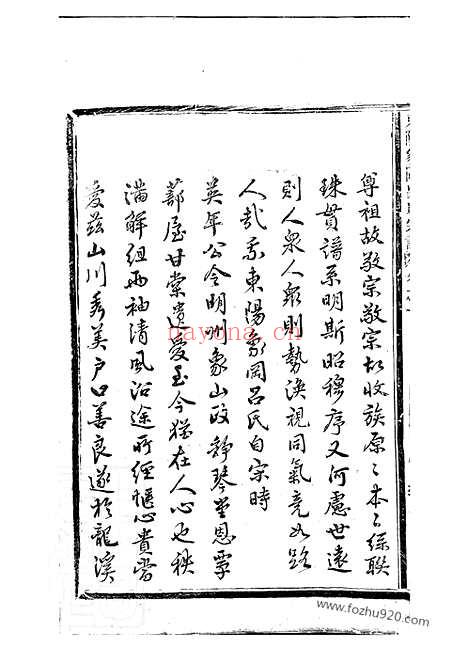 尊祖故敬宗敬宗故收族原〻本〻絲聯
珠貫譜系明斯昭穆序又何慮世遠
則人衆人衆則勢渙視同氣竟如路
人哉而東陽象岡呂氏自宗時
英年公令明州象山政靜琴堂恩覃
蔀屋甘棠遺愛至今猶在人心也秩
滿解組兩袖清風沿途所經愜心貴當
愛茲山川秀美戶口善良遂於龍溪
nayona.cn
www.fozhu920.com